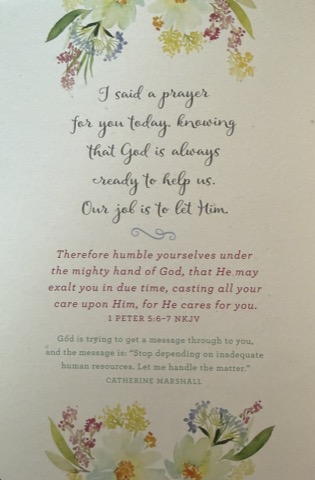 I said a prayer
for you today, knowing
that God is always
ready to help us.
Our job is to let Him.
Therefore humble yourselves under
the mighty hand of God, that He may
exalt you in due time, casting all your
care upon Him, for He cares for you.
1 PETER 5:6–7 NKJV
God is trying to get a message through to you,
and the message is: “Stop depending on inadequate
human resources. Let me handle the matter.”
CATHERINE MARSHALL